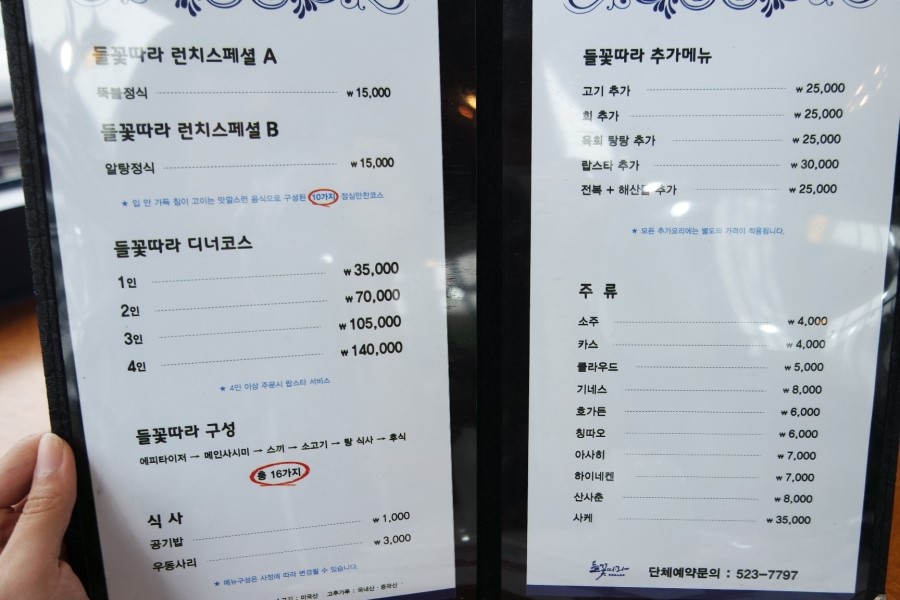 들꽃따라 런치스페셜 A
뚝불정식 ₩ 15,000
들꽃따라 런치스페셜 B
알탕정식 ₩ 15,000
★ 입 안 가득 침이 고이는 맛깔스런 음식으로 구성된 10가지 점심만찬코스
들꽃따라 디너코스
1인 ₩ 35,000
2인 ₩ 70,000
3인 ₩ 105,000
4인 ₩ 140,000
★ 4인 이상 주문시 랍스타 서비스
들꽃따라 구성
에피타이저 → 메인사시미 → 스끼 → 소고기 → 탕 식사 → 후식
총 16가지
식 사
공기밥 ₩ 1,000
우동사리 ₩ 3,000
★ 메뉴구성은 사정에 따라 변경될 수 있습니다.
미국산 고추가루 : 국내산 · 중국산
들꽃따라 추가메뉴
고기 추가 ₩ 25,000
회 추가 ₩ 25,000
육회 탕탕 추가 ₩ 25,000
랍스타 추가 ₩ 30,000
전복 + 해산물 추가 ₩ 25,000
★ 모든 추가요리에는 별도의 가격이 적용됩니다.
주 류
소주 ₩ 4,000
카스 ₩ 4,000
클라우드 ₩ 5,000
기네스 ₩ 8,000
호가든 ₩ 6,000
칭따오 ₩ 6,000
아사히 ₩ 7,000
하이네켄 ₩ 7,000
산사춘 ₩ 8,000
사케 ₩ 35,000
들꽃따라 단체예약문의 : 523-7797